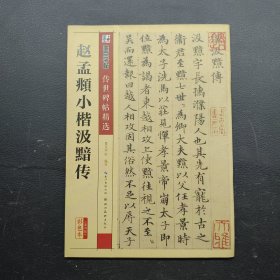 赵孟頫小楷汲黯传
传世碑帖精选
汲黯傳
汲黯字長孺濮陽人也其先有寵於古之
衛君至黯七世世為卿大夫黯以父任孝景時
為太子洗馬以莊見憚孝景帝崩太子即
位黯為謁者東越相攻上使黯往視之不至
吳而還報曰越人相攻固其俗然不足以辱天子